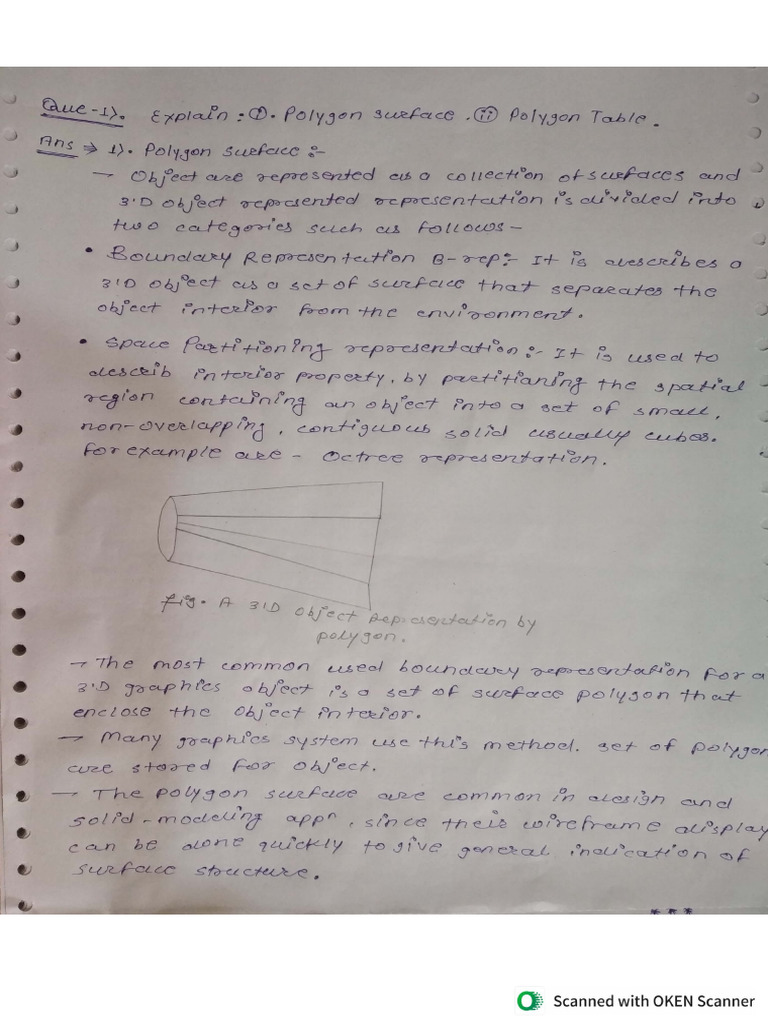 Que-1). Explain : i. Polygon surface. ii Polygon Table.
Ans ⇒ 1). Polygon surface :-
→ Object are represented as a collection of surfaces and
3'D object represented representation is divided into
two categories such as follows -
• Boundary Representation B-rep:- It is describes a
3'D object as a set of surface that separates the
object interior from the environment.
• Space Partitioning representation :- It is used to
describ interior property, by partitianing the spatial
region containing an object into a set of small,
non-overlapping, contiguous solid usually cubes.
for example are - Octree representation.
fig. A 3'D Object Representation by
polygon.
→ The most common used boundary representation for a
3'D graphics object is a set of surface polygon that
enclose the object interior.
→ Many graphics system use this method. set of polygon
are stored for object.
→ The polygon surface are common in design and
solid-modeling appⁿ, since their wireframe display
can be done quickly to give general indication of
surface structure.
Scanned with OKEN Scanner